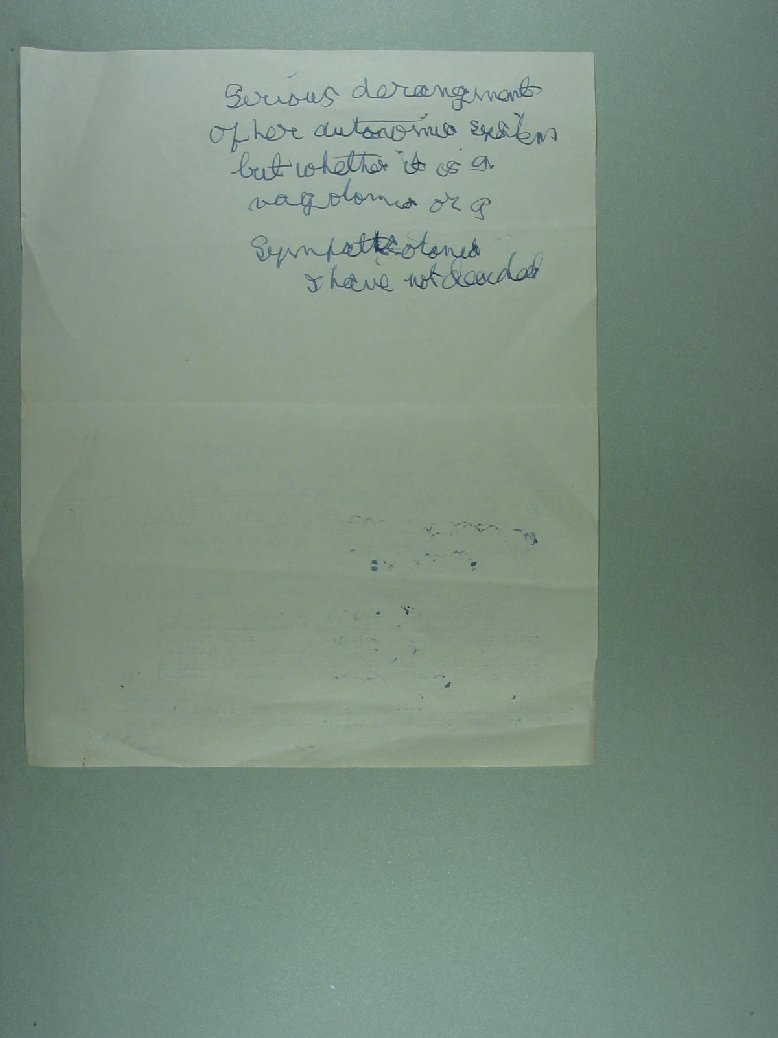 Serious derangement
of her autonomic system
but whether it is a
vagotomia or a
Sympatticotonia
I have not decided